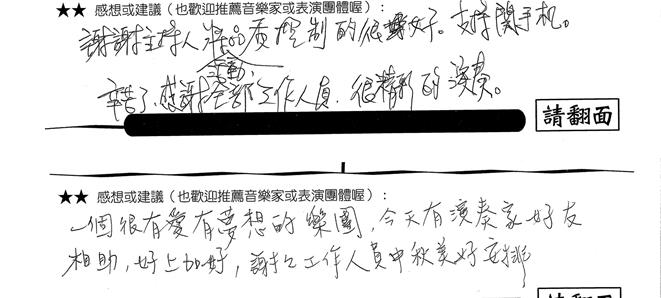 ★★ 感想或建議（也歡迎推薦音樂家或表演團體喔）：
謝謝主持人將品質控制的很好。支持關手机。
辛苦了，感謝全部工作人員，很精彩的演奏。
請翻面
★★ 感想或建議（也歡迎推薦音樂家或表演團體喔）：
一個很有愛有夢想的樂團，今天有演奏家好友
相助，好上加好，謝謝工作人員中秋美好安排